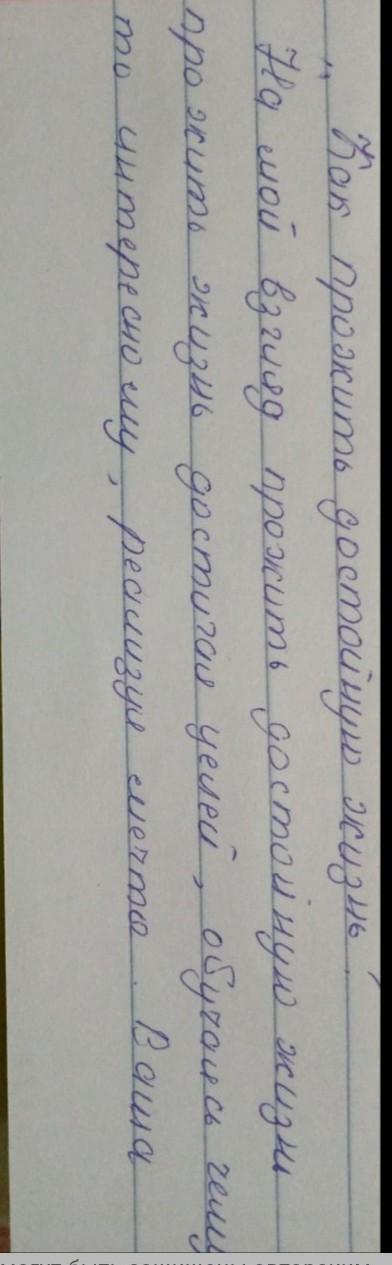 " Как прожить достойную жизнь.
На мой взгляд прожить достойную жизнь
прожить жизнь достигая целей, обучаясь чему
то интересному, реализуя мечты. Ваша
могут быть защищены авторским